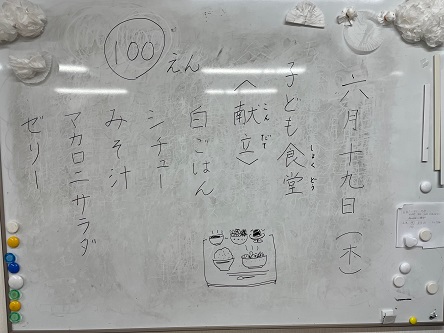 六月十九日(木)
子ども食堂
しょくどう
〈献立〉
こんだて
白ごはん
シチュー
みそ汁
マカロニサラダ
ゼリー
100えん